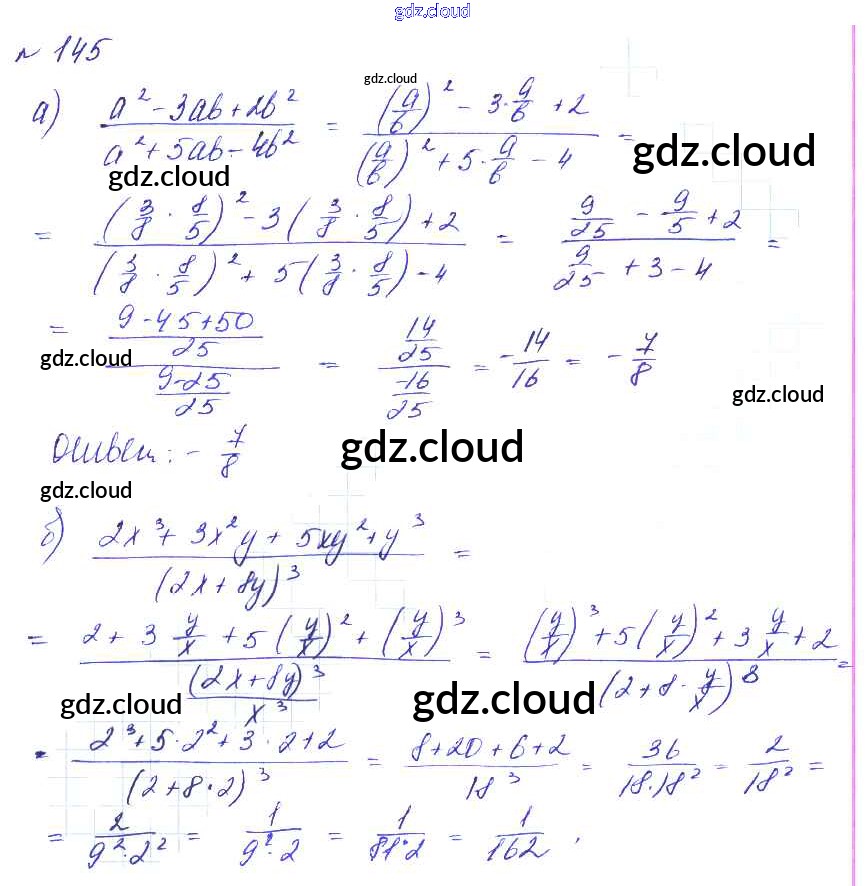 gdz.cloud
№ 145
gdz.cloud
а) (a² - 3ab + 2b²)/(a² + 5ab - 4b²) = ((a/b)² - 3·a/b + 2)/((a/b)² + 5·a/b - 4) =
gdz.cloud
gdz.cloud
= ((3/8 · 8/5)² - 3(3/8 · 8/5) + 2)/((3/8 · 8/5)² + 5(3/8 · 8/5) - 4) = (9/25 - 9/5 + 2)/(9/25 + 3 - 4) =
= ((9-45+50)/25)/((9-25)/25) = (14/25)/(-16/25) = -14/16 = -7/8
gdz.cloud
gdz.cloud
Ответ: -7/8
gdz.cloud
gdz.cloud
б) (2x³ + 3x²y + 5xy² + y³)/(2x + 8y)³ =
gdz.cloud
= (2 + 3 y/x + 5(y/x)² + (y/x)³)/((2x + 8y)³/x³) = ((y/x)³ + 5(y/x)² + 3 y/x + 2)/(2 + 8·y/x)³ =
gdz.cloud
gdz.cloud
= (2³ + 5·2² + 3·2 + 2)/(2 + 8·2)³ = (8+20+6+2)/18³ = 36/(18·18²) = 2/18² =
= 2/(9²·2²) = 1/(9²·2) = 1/(81·2) = 1/162.